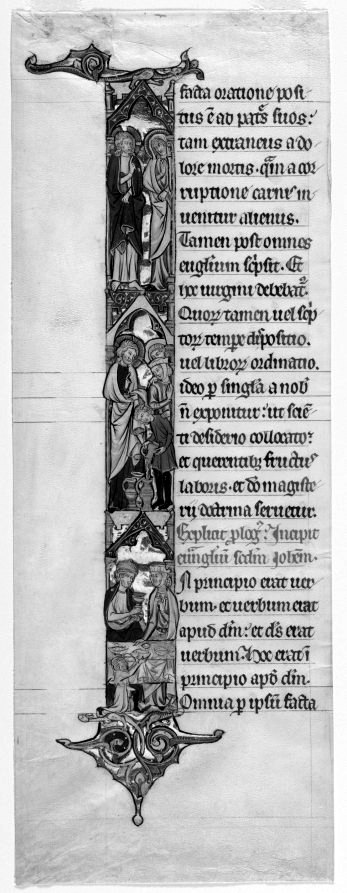 facta oratione posi-
tus ē ad patꝭ suos:
tam extraneus a do
lore mortis. qͣm a cor
ruptione carnis in
uenitur alienus.
Tamen post omnes
euglium scpsit. Et
hoc uirgini debebat̉.
Quoꝝ tamen uel scp
toꝝ tempꝝ dispositio.
uel libroꝝ ordinatio.
ideo ꝑ singla a nob̄
n̄ exponitur: ut sciē-
ti desiderio collocato:
et querentibꝫ fructus
laboris. et do magiste-
rii doctrina seruetur.
Explicit plog̉. Incipit
euuāgliū scdm Johem.
N principio erat uer
bum. et uerbum erat
apud dm̄: et ds̄ erat
uerbum. Hoc erat ī
principio apd̄ dm̄.
Omnia ꝑ ipsū facta